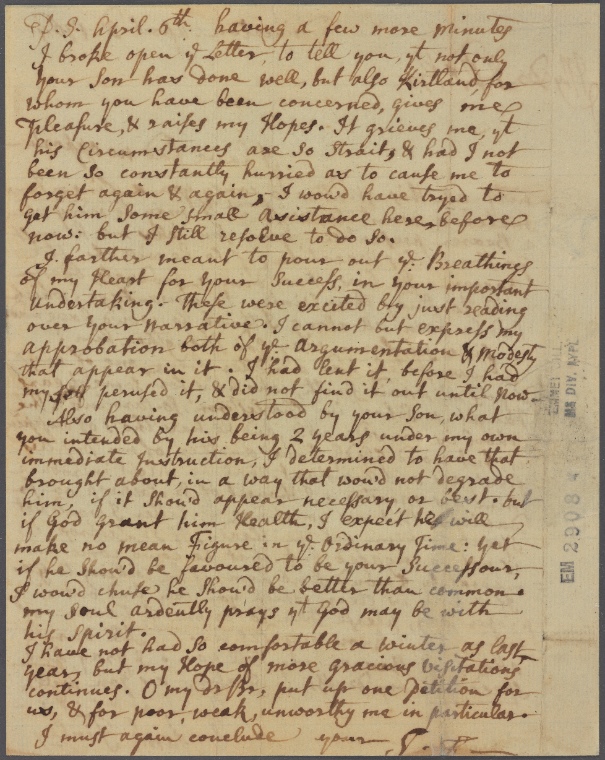 P.S. April. 6th having a few more minutes
I broke open ye Letter, to tell you, yt not only
your Son has done well, but also Kirtland, for
whom you have been concerned, gives me
Pleasure, & raises my Hopes. It grieves me, yt
his Circumstances are so Strait, & had I not
been so constantly hurried as to cause me to
forget again & again, I wou'd have tryed to
get him Some small Asistance here, before
now: but I still resolve to do so.
I farther meant to pour out ye Breathings
of my Heart for your Success, in your important
undertaking. These were excited by just reading
over your Narrative. I cannot but express my
approbation both of ye Argumentation & Modesty
that appear in it. I had lent it before I had
my self perused it, & did not find it out until now.
Also having understood by your Son, what
you intended by his being 2 years under my own
immediate Instruction, I determined to have that
brought about, in a way that wou'd not degrade
him, if it shou'd appear necessary or best. but
if God grant him Health, I expect he will
make no mean Figure in ye Ordinary Time: yet
if he shou'd be favoured to be your Successour,
I wou'd chuse he shou'd be better than common.
my Soul ardently prays yt God may be with
his Spirit.
I have not had so comfortable a winter as last
year, but my Hope of more gracious Visitations
continues. O my dr Br, put up one Petition for
us, & for poor, weak, unworthy me in particular.
I must again conclude your
EMMET
MS DIV. NYPL
EM 2908